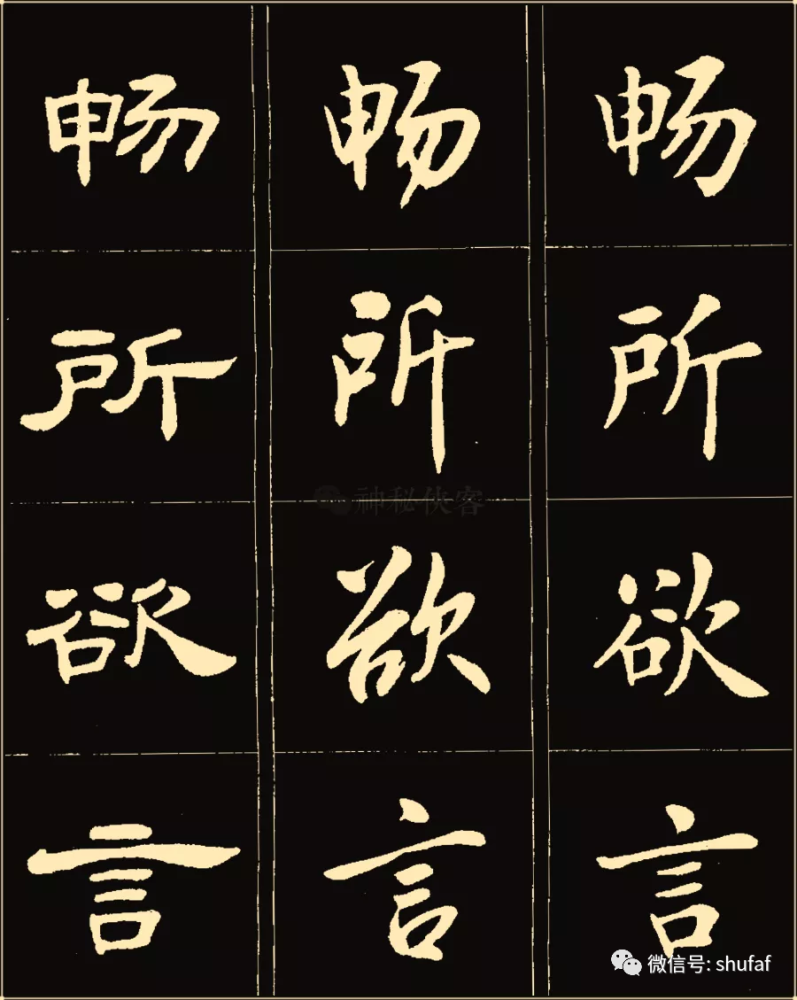 畅 畅 畅
所 所 所
欲 欲 欲
言 言 言
神秘侠客
微信号: shufaf